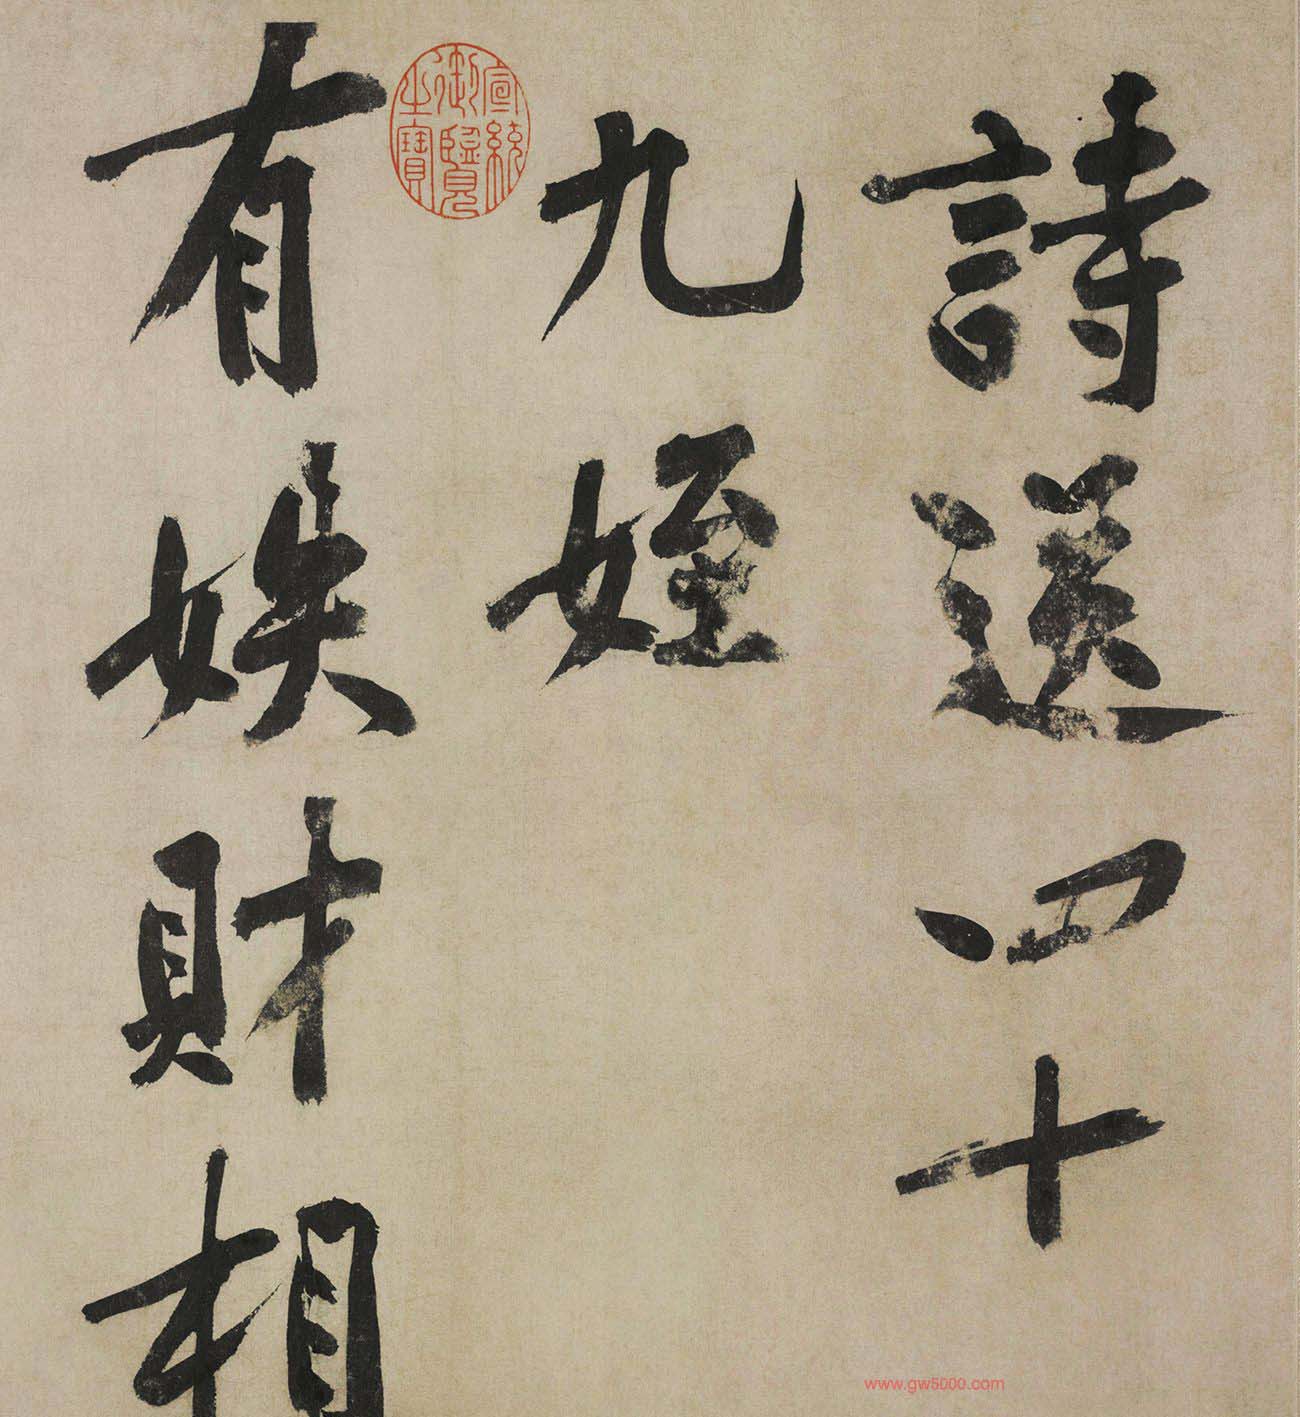 詩送四十
九姪
宣統御覽之寶
有娱財相
www.gw5000.com